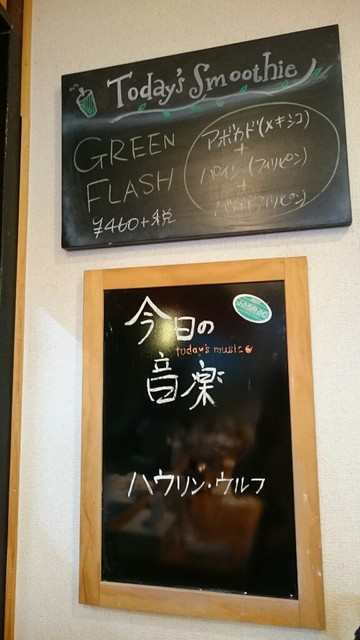 Today's Smoothie
GREEN
FLASH
¥460+税
アボカド(メキシコ)
+
パイン(フィリピン)
+
今日の
today's music
音楽
ハウリン・ウルフ